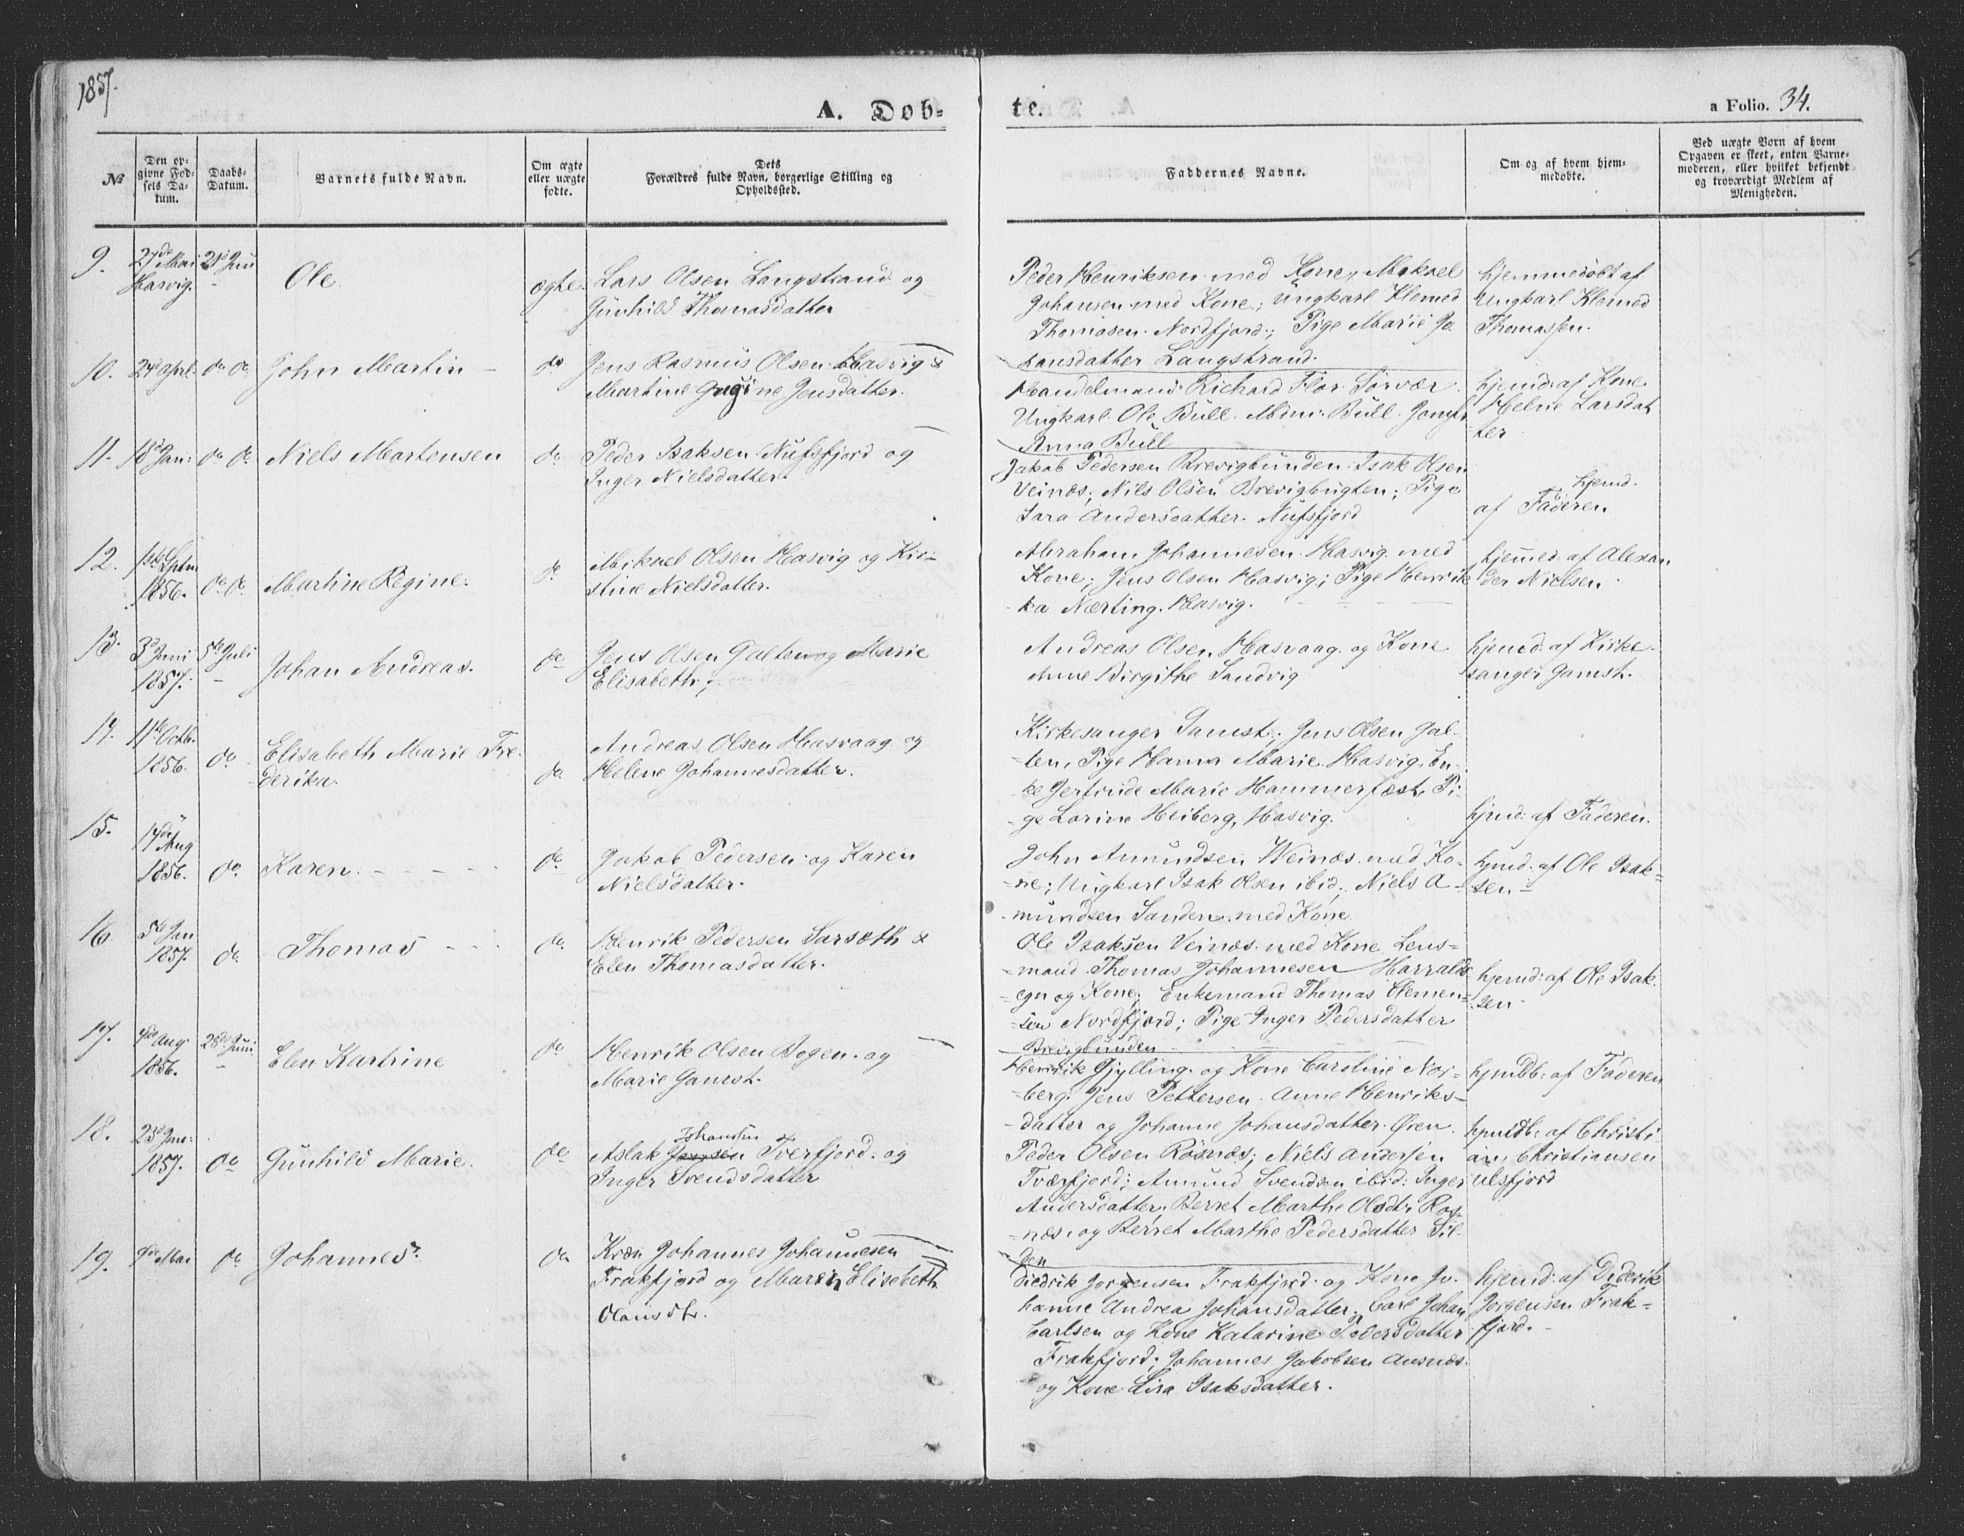 1857.
A. Døb-
te.
a Folio. 34.
No
Den op-
givne Fød-
sels Da-
tum.
Daabs-
Datum.
Barnets fulde Navn.
Om ægte
eller uægte
fødte.
Dets
Forældres fulde Navn, borgerlige Stilling og
Opholdssted.
Faddernes Navne.
Om og af hvem hjem-
medøbte.
Ved uægte Børn af hvem
Opgaven er skeet, enten Barne-
moderen, eller hvilket bekjendt
og troværdigt Medlem af
Menigheden.
9.
27de Mai
Hasvig.
21d Juni
Ole
ægte.
Lars Olsen Langstrand og
Gunhild Thomasdatter
Peder Henriksen med Kone, Mikael
Johansen med Kone; Ungkarl Klemed
Thomasen Nordfjord; Pige Marie Jo
hansdatter Langstrand.
hjemmedøbt af
Ungkarl Klemed
Thomassen.
10.
24d April
do do
John Martin
do
Jens Rasmus Olsen Hasvig &
Martine Jensdatter.
Handelsmand Richard Flor Sørvær
Ungkarl Ole Bull. Mdm: Bull Jomfr
Anna Bull
hjemd: af Kone
Helne Larsdat
ter
11.
18d Jan:
do do
Niels Mortensen
do
Peder Isaksen Nufsfjord og
Inger Nielsdatter.
Jakob Pedersen Brevigbunden Isak Olsen
Veinæs; Nils Olsen Brevigbugten; Pige
Sara Andersdatter Nufsfjord
hjemd.
af Faderen
12.
1ste Sptm
1856.
do do
Martine Regine.
do
Mikael Olsen Hasvig og Kir-
stine Nielsdatter.
Abraham Johannesen Hasvig med
Kone; Jens Olsen Hasvig; Pige Henrik
ka Nærting. Hasvig.
hjemed. af Alexan
der Nielsen
13.
3d Juni
1857.
5te Juli
Johan Andreas.
do
Jens Olsen Galten og Marie
Elisabeth;
Andreas Olsen Hasvaag og Kone
Anne Birgithe Sandvig
hjemd: af Kirke
sanger Gamst.
14.
11te Octb.
1856.
do
Elisabeth Marie Fre
derika.
do
Andreas Olsen Hasvaag og
Helene Johannesdatter.
Kirkesanger Gamst; Jens Olsen Gal-
ten, Pige Hanna Marie Hasvig, En-
ke Gertrude Marie Hammerfest, Pi
ge Lorine Heiberg, Hasvig.
hjmd: af Faderen.
15.
14de Aug
1856.
do
Karen
do
Jakob Pedersen og Karen
Nielsdatter.
John Amundsen Weinæs med Ko-
ne; Ungkarl Isak Olsen ibid; Niels A
mundsen Sanden med Kone
hjmd: af Ole Isak-
sen
16
5te Jan
1857.
do
Thomas
do
Henrik Pedersen &
Elen Thomasdatter.
Ole Isaksen Veinæs med Kone Lens-
mand Thomas Johannesen Harralds
egn og Kone; Enkemand Thomas Clemen-
sen Nordfjord; Pige Inger Pedersdatter
Brevigbunden
hjemd: af Ole Isak
sen
17.
4de Aug.
1856.
28de Juni
Elen Kartrine
do
Henrik Olsen Bogen og
Marie Gamst.
Henrik Gjylling og Kone Caroline Nor-
berg. Jens Pettersen. Anne Henriks-
datter og Johanne Johansdatter Øien.
hjmdb: af Faderen
18.
23d Jan:
1857.
do
Gunhild Marie.
do
Johansen
Aslak Jensen Tverfjord og
Inger Svendsdatter
Peder Olsen Rosnæs; Niels Andersen
Tværfjord; Amund Svendsen ibid: Inger
Andersdatter, Berret Marthe Olsdt: Ros
næs og Berret Marthe Pedersdatter Sil
den
hjmdb: af Christi
an Christiansen
Ulsfjord
19.
9de Mai
do
Johannes
do
Kræn Johannes Johannesen
Frakfjord og Maren Elisebeth
Olausdtr.
Diedrik Jørgensen Frakfjord og Kone Jo-
hanne Andrea Johansdatter. Carl Johan
Carlsen og Kone Katarine Pedersdatter
Frakfjord; Johannes Jakobsen Ausnæs
og Kone Lisa Isaksdatter.
hjemd: af Diderik
Jørgensen Frak-
fjord.